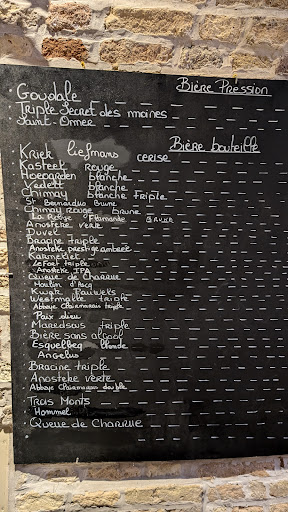 Bière Pression
Goudale
Triple Secret des moines
Saint-Omer
Bière bouteille
Kriek Liefmans cerise
Kasteel rouge
Hoegarden blanche
Vedett blanche
Chimay blanche triple
St Bernardus Brune
Chimay rouge brune
La Rouge Flamande
Anosteke verte
Duvet
Bracine triple
Anosteke prestige ambrée
Karmeliet
LeFort triple
Anosteke IPA
Queue de Charrue
Moulin d'Ascq
Kwak Pauwels
Westmalle triple
Abbaye triple
Paix dieu
Maredsous triple
Bière sans alcool
Esquelbecq blonde
Angelus
Bracine triple
Anosteke verte
Abbaye double
Trois Monts
Hommel
Queue de Charrue